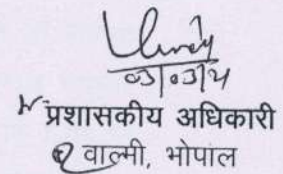 03/03/21
प्रशासकीय अधिकारी
वाल्मी, भोपाल